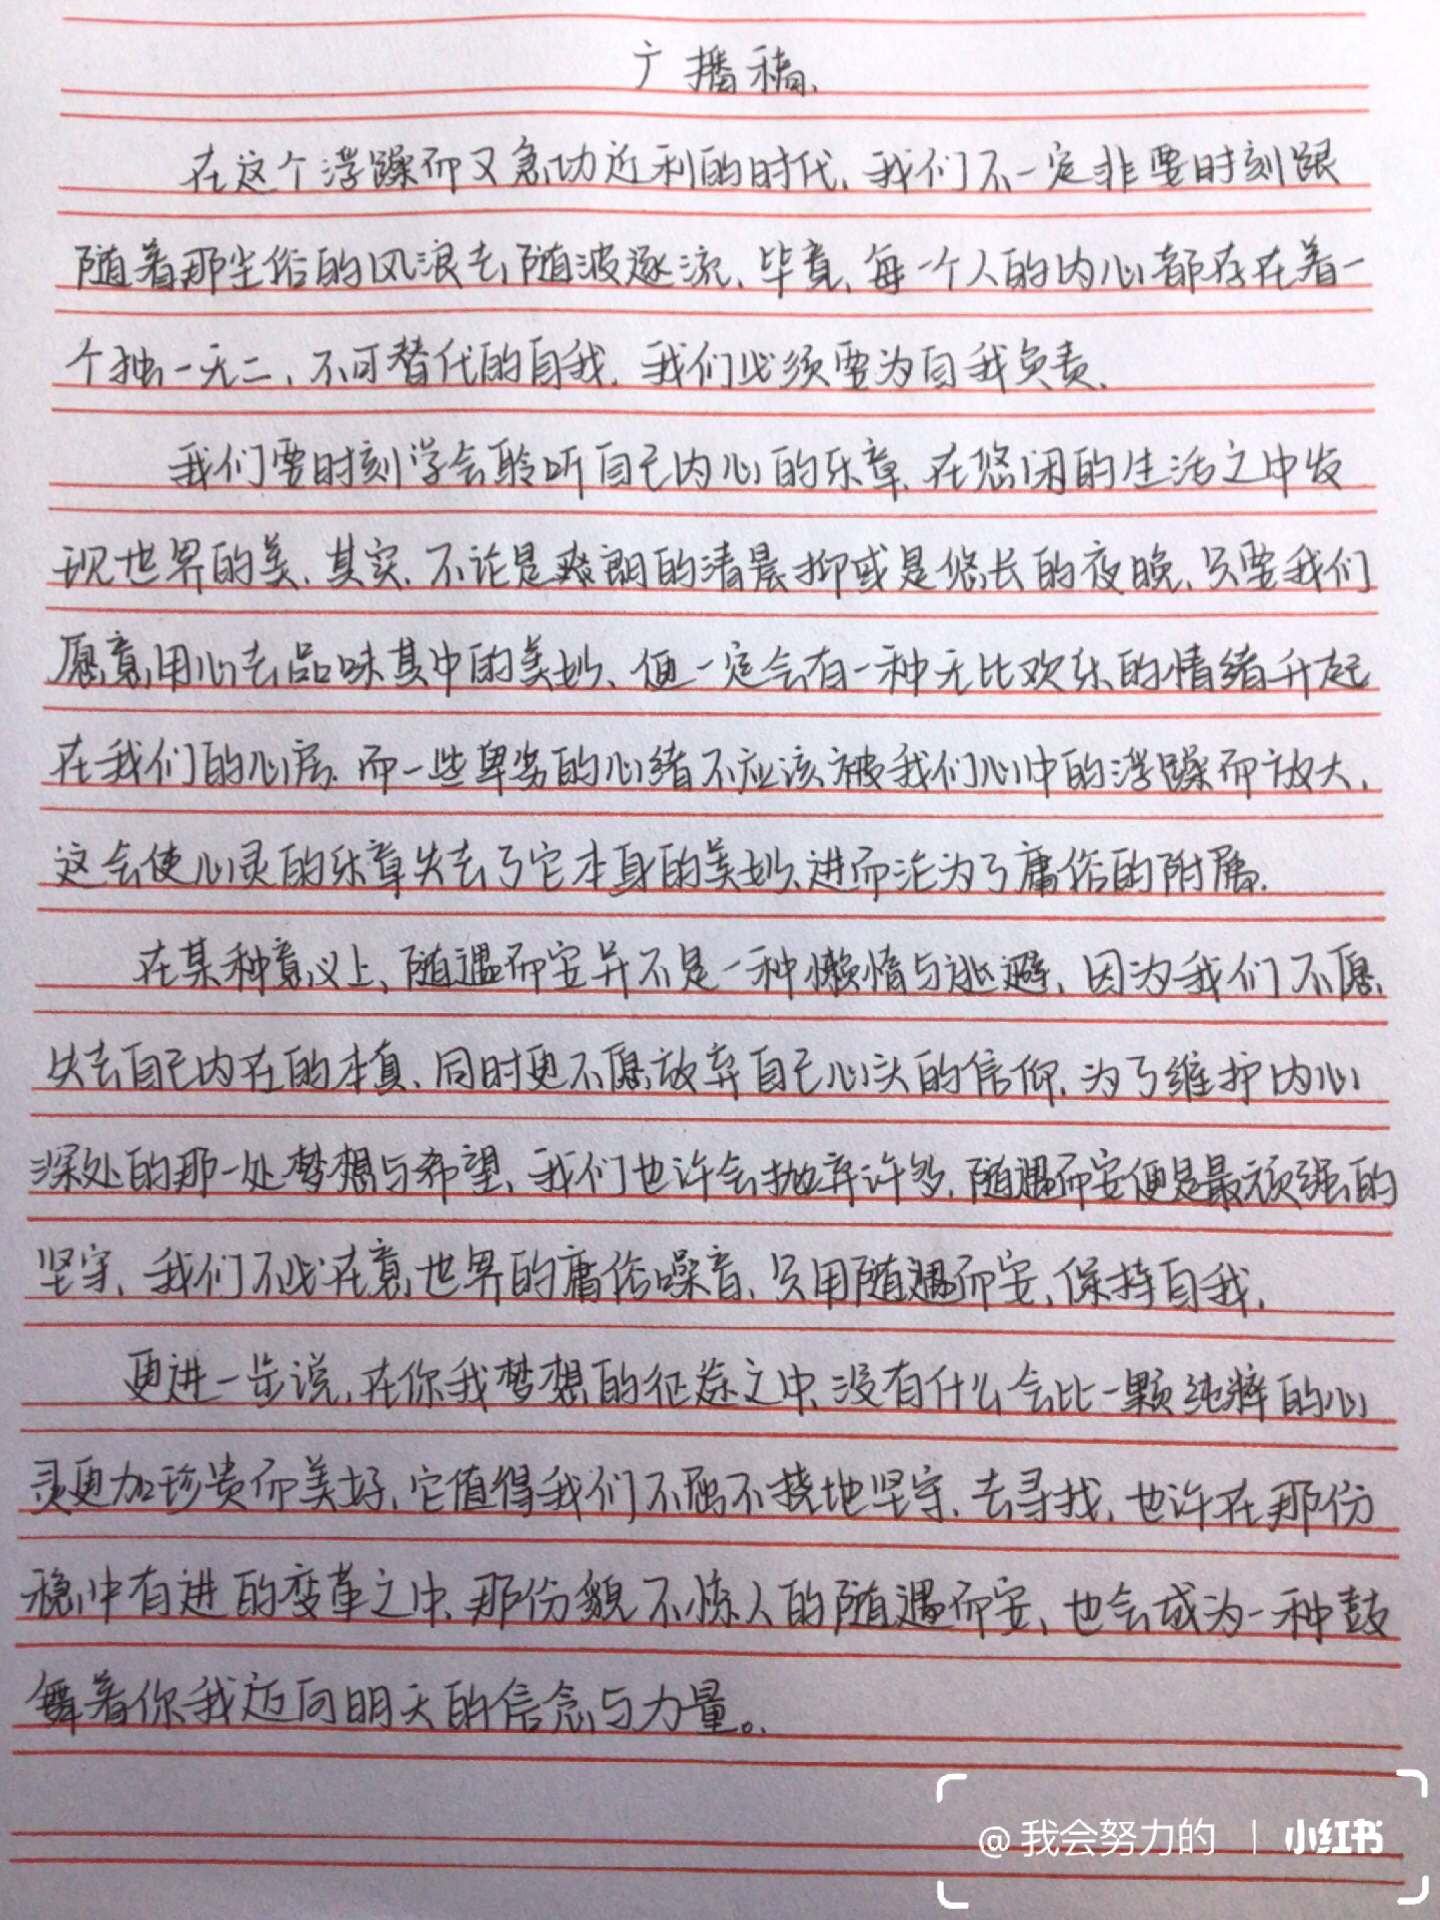 广播稿.
在这个浮躁而又急功近利的时代,我们不一定非要时刻跟
随着那尘俗的风浪去随波逐流,毕竟,每一个人的内心都存在着一
个独一无二,不可替代的自我.我们必须要为自我负责.
我们要时刻学会聆听自己内心的乐章,在悠闲的生活之中发
现世界的美.其实,不论是爽朗的清晨抑或是悠长的夜晚,只要我们
愿意用心去品味其中的美妙,便一定会有一种无比欢乐的情绪升起
在我们的心房.而一些卑劣的心绪不应该被我们心中的浮躁而放大,
这会使心灵的乐章失去了它本身的美妙,进而沦为了庸俗的附属.
在某种意义上,随遇而安并不是一种懒惰与逃避,因为我们不愿
失去自己内在的本真,同时更不愿放弃自己心头的信仰.为了维护内心
深处的那一处梦想与希望,我们也许会抛弃许多.随遇而安便是最顽强的
坚守,我们不必在意世界的庸俗噪音,只用随遇而安,保持自我.
更进一步说,在你我梦想的征途之中,没有什么会比一颗纯粹的心
灵更加珍贵而美好,它值得我们不屈不挠地坚守.去寻找,也许在那份
稳中有进的变革之中,那份貌不惊人的随遇而安,也会成为一种鼓
舞着你我迈向明天的信念与力量。.
@我会努力的 | 小红书